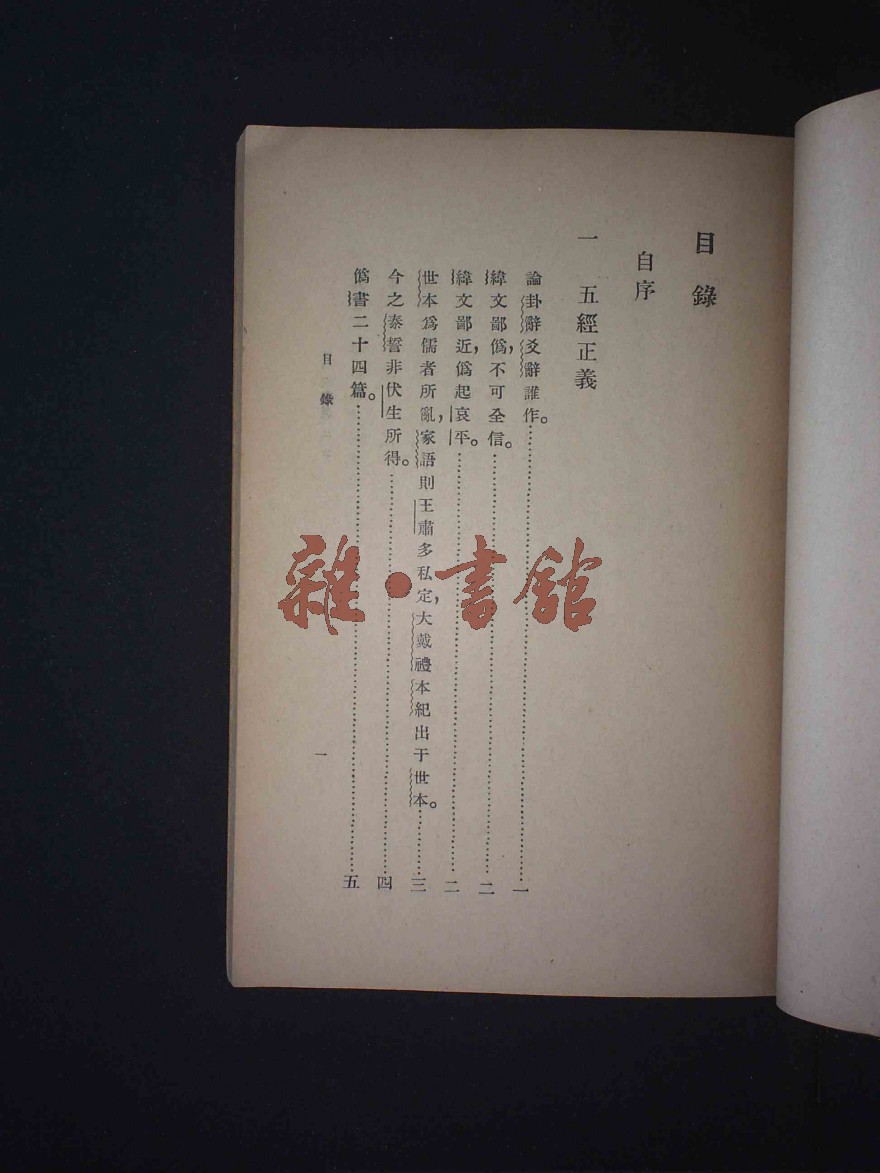 目錄
自序
一 五經正義
論卦辭爻辭誰作。……一
緯文鄙僞,不可全信。……二
緯文鄙近,僞起哀平。……二
世本爲儒者所亂,家語則王肅多私定,大戴禮本紀出于世本。……三
今之泰誓非伏生所得。……四
僞書二十四篇。……五
目錄
一
雜·書館